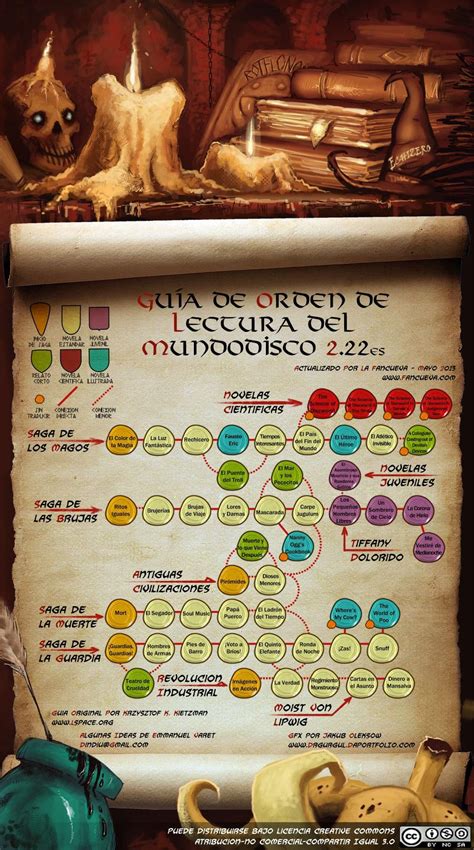 Guía de Orden de
Lectura del
Mundodisco 2.22es
Actualizado por La Fancueva - Mayo 2013
www.fancueva.com
Inicio de Saga
Novela Estandar
Novela Juvenil
Relato Corto
Novela Científica
Novela Ilustrada
Sin Traducir
Conexion Directa
Conexion Menor
Novelas Científicas
Saga de los Magos
El Color de la Magia
La Luz Fantástica
Rechicero
Fausto Eric
Tiempos Interesantes
El País del Fin del Mundo
El Último Héroe
El Atlético Invisible
El Puente del Troll
El Mar y los Pececitos
Novelas Juveniles
Saga de las Brujas
Ritos Iguales
Brujerías
Brujas de Viaje
Lores y Damas
Mascarada
Carpe Jugulum
Los Pequeños Hombres Libres
Un Sombrero de Cielo
La Corona de Hielo
Muerte y lo que Viene Después
Nanny Ogg's Cookbook
Tiffany Dolorido
Me Vestiré de Medianoche
Antiguas Civilizaciones
Pirómides
Dioses Menores
Saga de la Muerte
Mort
El Segador
Soul Music
Papá Puerco
El Ladrón del Tiempo
Where's My Cow?
The World of Poo
Saga de la Guardia
¡Guardias! ¡Guardias!
Hombres de Armas
Pies de Barro
¡Voto a Bríos!
El Quinto Elefante
Ronda de Noche
¡Zas!
Snuff
Teatro de Crueldad
Revolucion Industrial
Imágenes en Acción
La Verdad
Regimiento Monstruoso
Cartas en el Asunto
Dinero a Mansalva
Moist Von Lipwig
Guia original por Krzysztof K. Kietzman
www.lspace.org
Algunas ideas de Emmanuel Varet
dindiu@gmail.com
GFX por Jakub Oleksow
www.drgurgul.daportfolio.com
Puede distribuirse bajo licencia Creative Commons
Atribucion-No Comercial-Compartir Igual 3.0
cc
BY NC SA